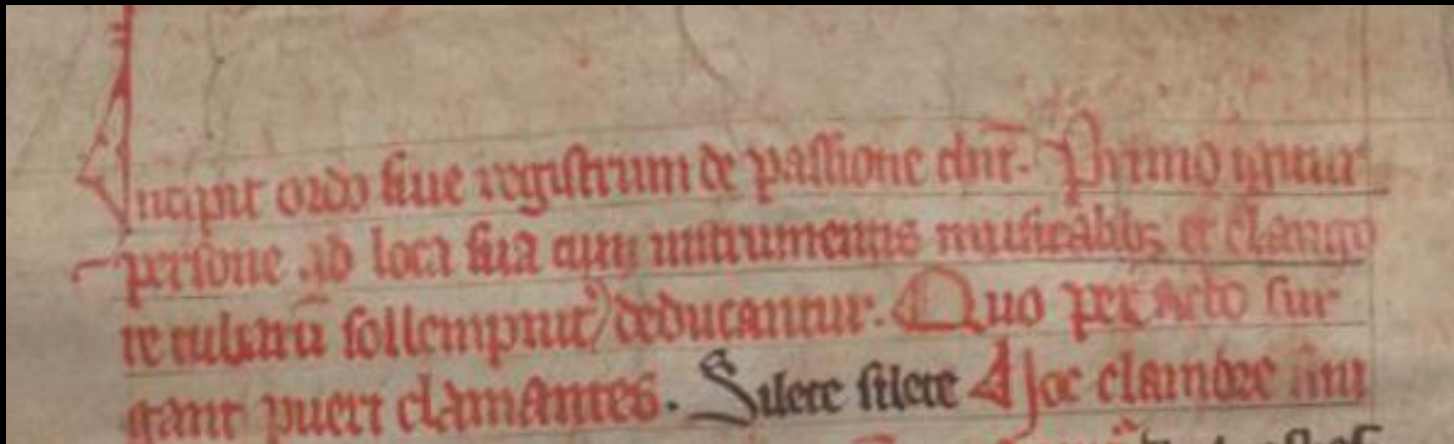 Incipit ordo siue registrum de passione dni. Primo igitur
persone ad loca sua cum instrumentis musicalibus et clango
re tubarum sollempniter deducantur. Quo perfecto sur
gant pueri clamantes. Silete silete Hoc clamore fini